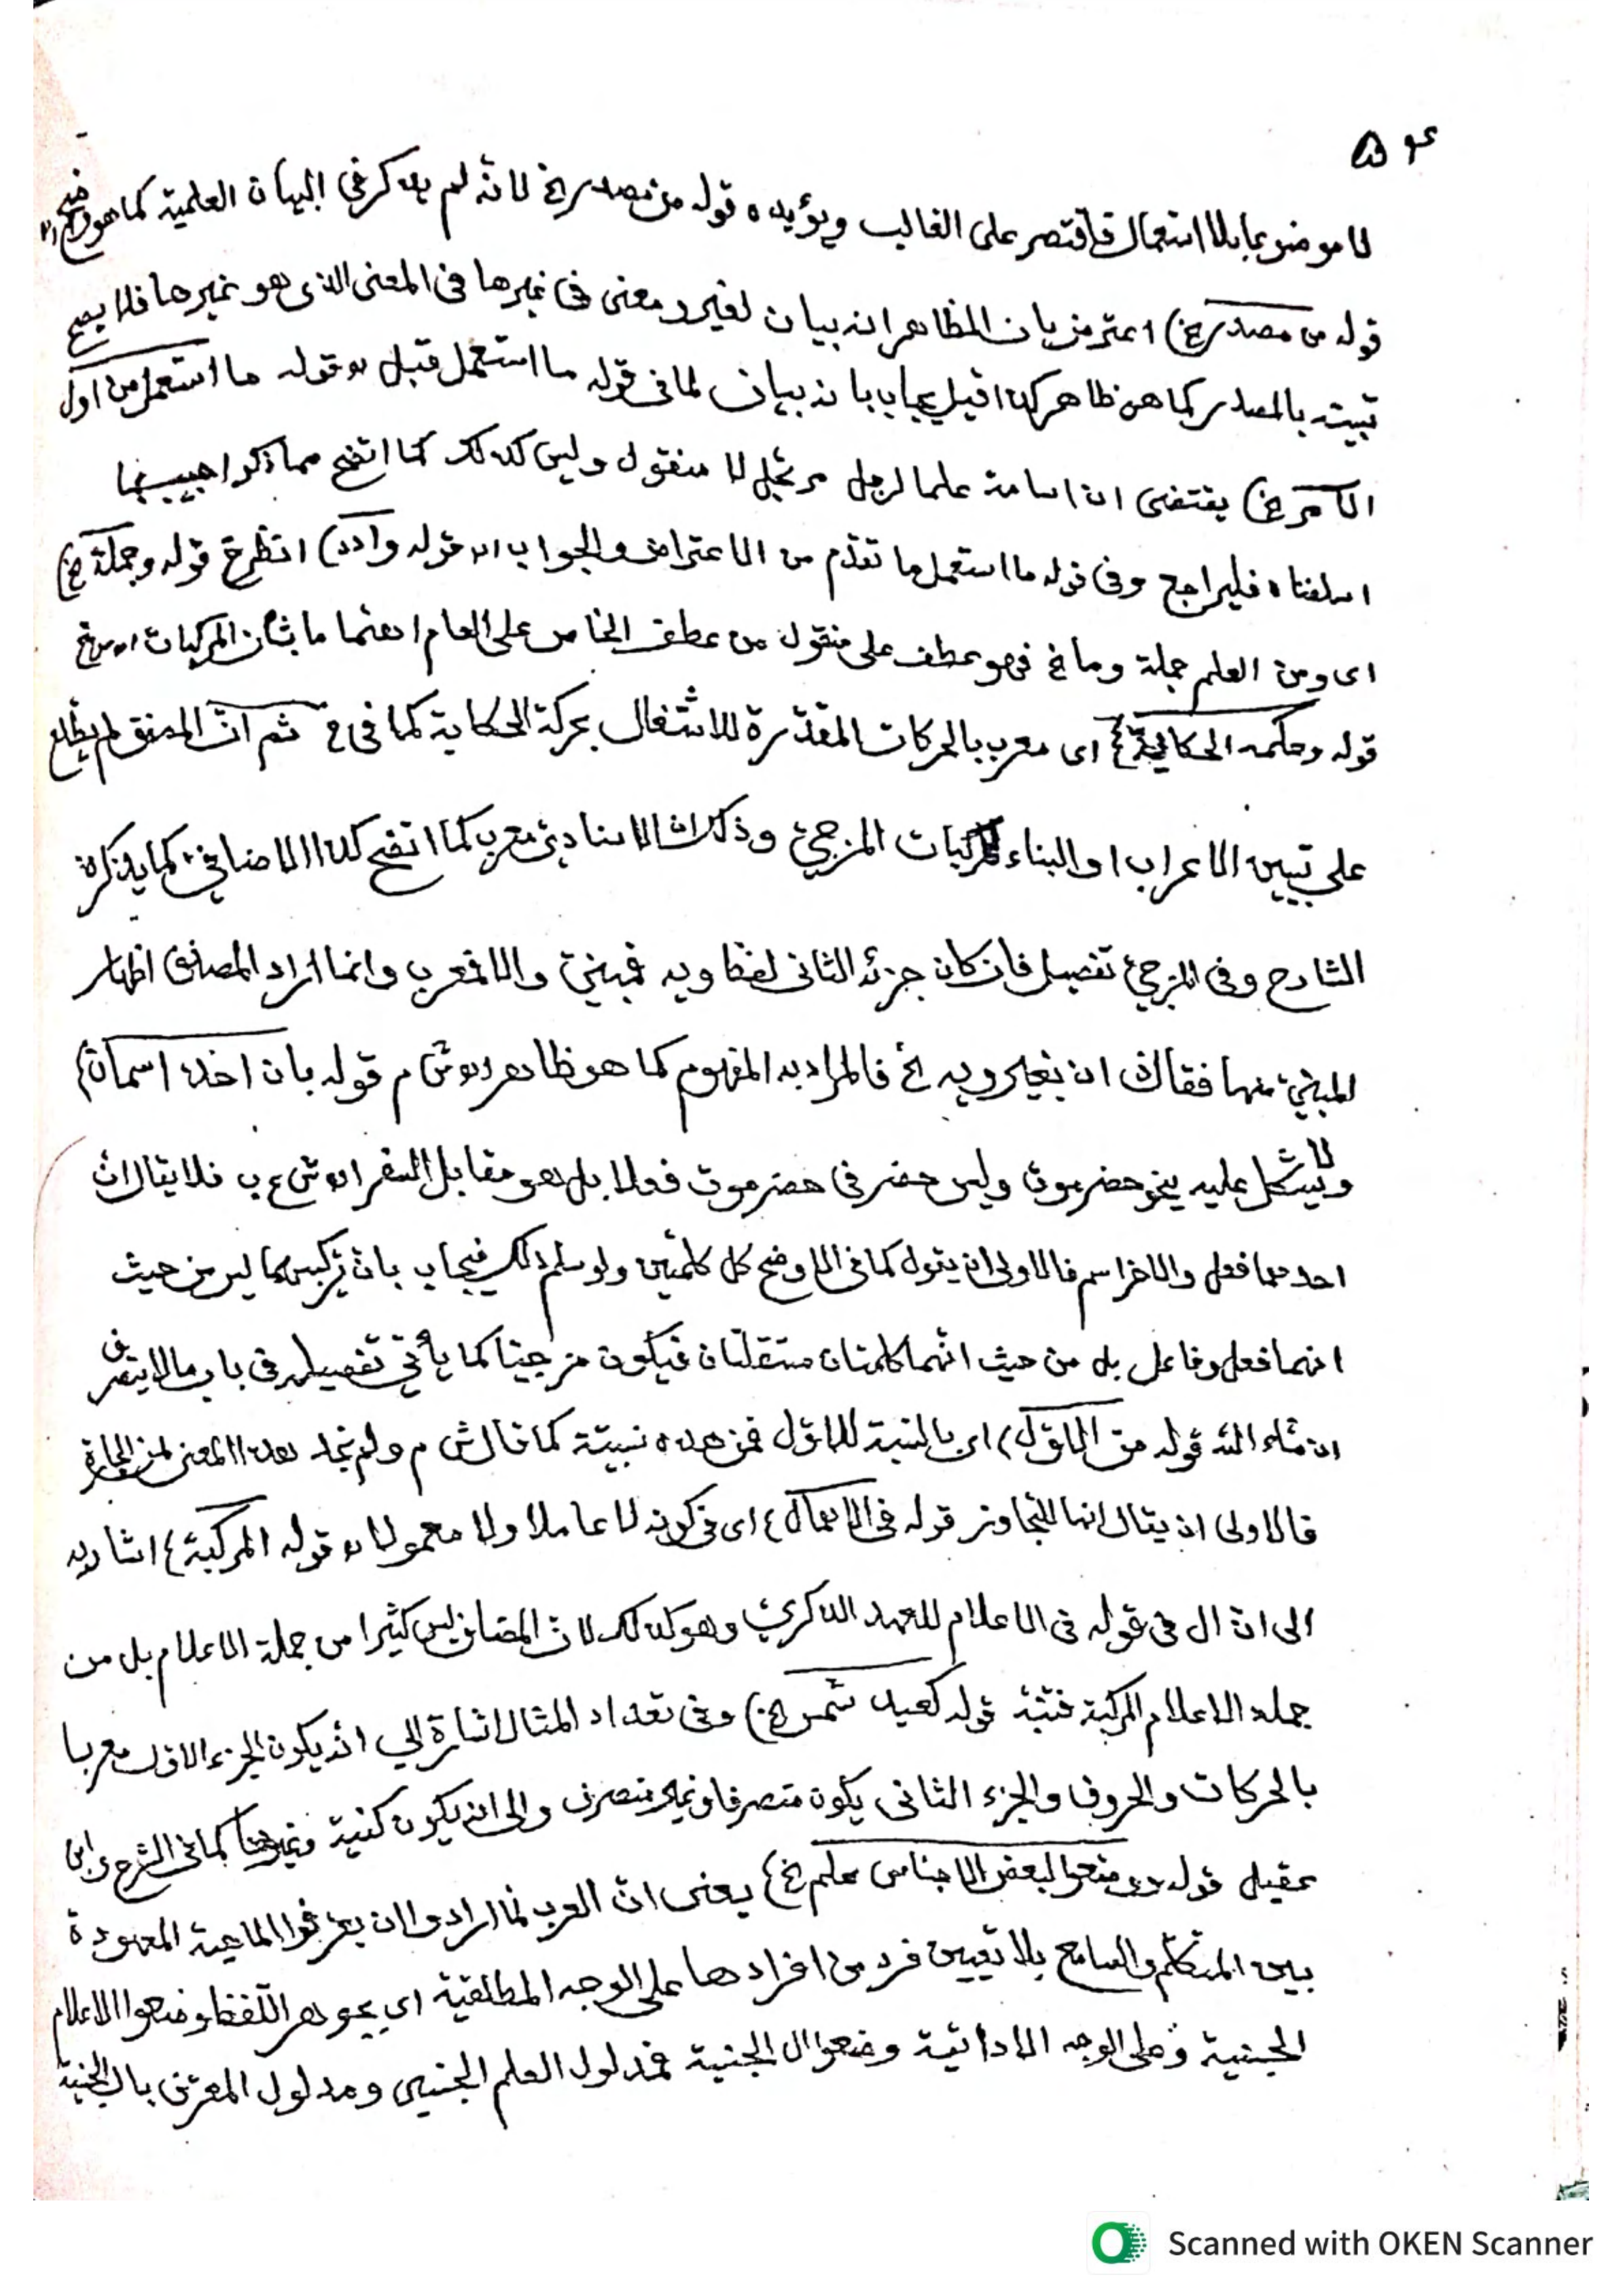 لا موضوعا بلا استعمال فاقتصر على الغالب ويؤيده قوله من مصدر الخ لانه لم يذكر في البيان العلمية كما هو واضح اه
قوله من مصدر الخ) اعترض بان الظاهر انه بيان لغير ومعنى في غيرها في المعنى الذي هو غيرها فلا يصح
تبيينه بالمصدر كما هو ظاهر كذا قيل يجاب بانه بيان لما في قوله ما استعمل قبل اه قوله ما استعمل من اول
الامر الخ) يقتضى ان اسامة علما لرجل مرتجل لا منقول وليس كذلك كما اتضح مما ذكر اجيب بما
اسلفناه فليراجع وفى قوله ما استعمل ما تقدم من الاعتراض والجواب اه قوله وادد) انظر خ قوله وجملة الخ)
اى ومن العلم جملة وما الخ فهو عطف على منقول من عطف الخاص على العام اهتماما بشأن المركبات اه
قوله وحكمه الحكاية الخ) اى معرب بالحركات المقدرة للاشتغال بحركة الحكاية كما فى ثم ان المصنف لم يطلع
على تبيين الاعراب او البناء للمركبات المزجي وذكر ان الاسنادي معرب كما اتضح كذا الاضافي كما يذكره
الشارح وفى المزجي تفصيل فان كان جزئه الثانى لفظ ويه فمبني والا فمعرب وانما اراد المصنف اظهار
المبني منها فقال ان بغير ويه الخ فالمراد به المفهوم كما هو ظاهر اه ش م قوله بان اخذ اسمان)
ولا يشكل عليه نحو حضرموت وليس حضر فى حضرموت فعلا بل هو مقابل السفر اه ش ع ب فلا يقال ان
احدهما فعل والاخر اسم فالاولى ان يقول كما فى الاوضح كل كلمتين ولو سلم ذلك فيجاب بان تركيبهما ليس من حيث
انهما فعل وفاعل بل من حيث انهما كلمتان مستقلتان فيكون مزجيا كما يأتي تفصيله فى باب مالا ينصرف
ان شاء الله قوله من الاول) اى بالنسبة للاول فمن هذه نسبية كما قال ش م ولم نجد هذا المعنى لمن الجارة
فالاولى ان يقال انها للتجاوز قوله فى الاعمال) اى فى كونه لا عاملا ولا معمولا اه قوله المركبة) اشار به
الى ان ال فى قوله فى الاعلام للعهد الذكري وهو كذلك لان المضاف ليس كثيرا من جملة الاعلام بل من
جملة الاعلام المركبة فتنبه قوله كعبد شمس الخ) وفى تعداد المثال اشارة الى انه يكون الجزء الاول معربا
بالحركات والحروف والجزء الثانى يكون منصرفا وغير منصرف والى انه يكون كنية وغيرها كما فى الشرح وابن
عقيل قوله ووضعوا لبعض الاجناس علم الخ) يعنى ان العرب لما ارادوا ان يعرفوا الماهية المعهودة
بين المتكلم والسامع بلا تعيين فرد من افرادها على الوجه المطلقية اى بجوهر اللفظ وضعوا الاعلام
الجنسية وعلى الوجه الاداتية وضعوا ال الجنسية فمدلول العلم الجنسى ومدلول المعرف بال الجنسية
Scanned with OKEN Scanner